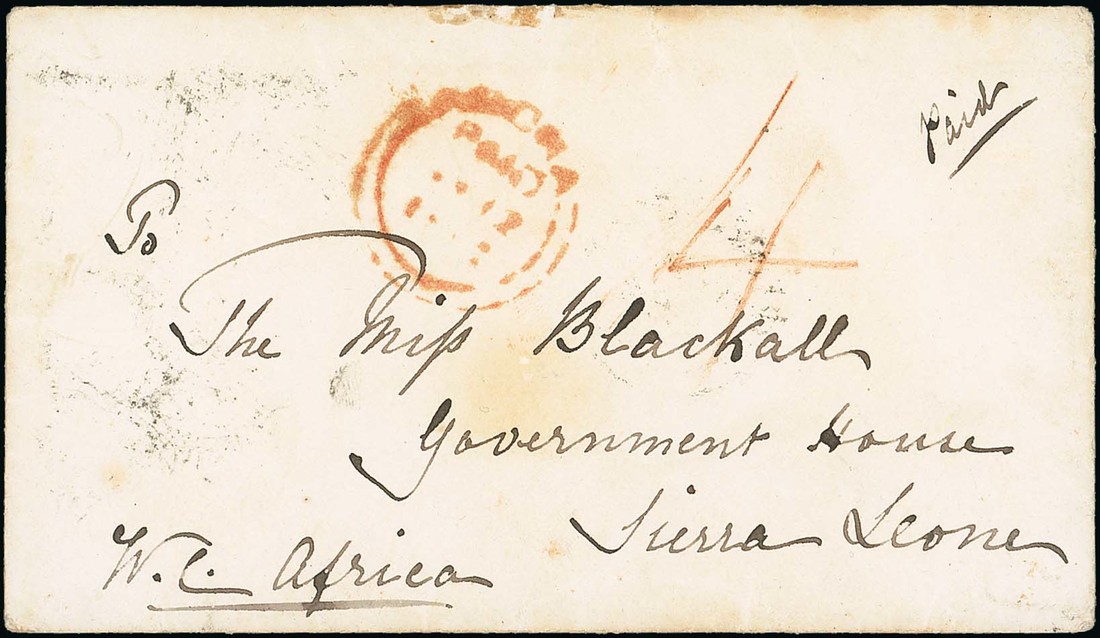 Paid
4
To
The Miſs Blackall
Government House
Sierra Leone
W.C. Africa